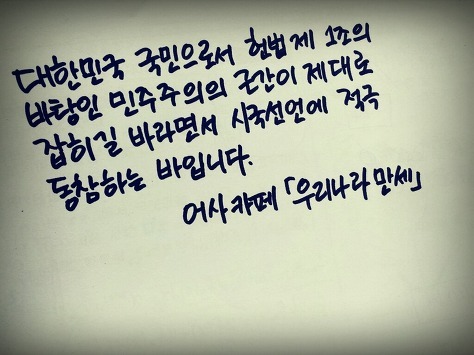 대한민국 국민으로서 헌법 제 1조의
바탕인 민주주의의 근간이 제대로
잡히길 바라면서 시국선언에 적극
동참하는 바입니다.
어사 카페 「우리나라 만세」